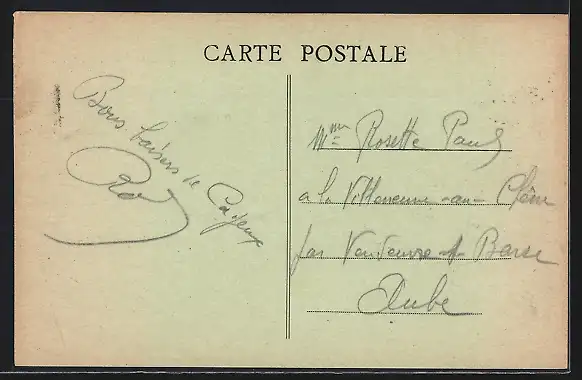 CARTE POSTALE
Bons baisers de Cayeux
Mme Rosette Paul
a la Villeneuve-au-Chêne
par Vendeuvre-s-Barse
Aube